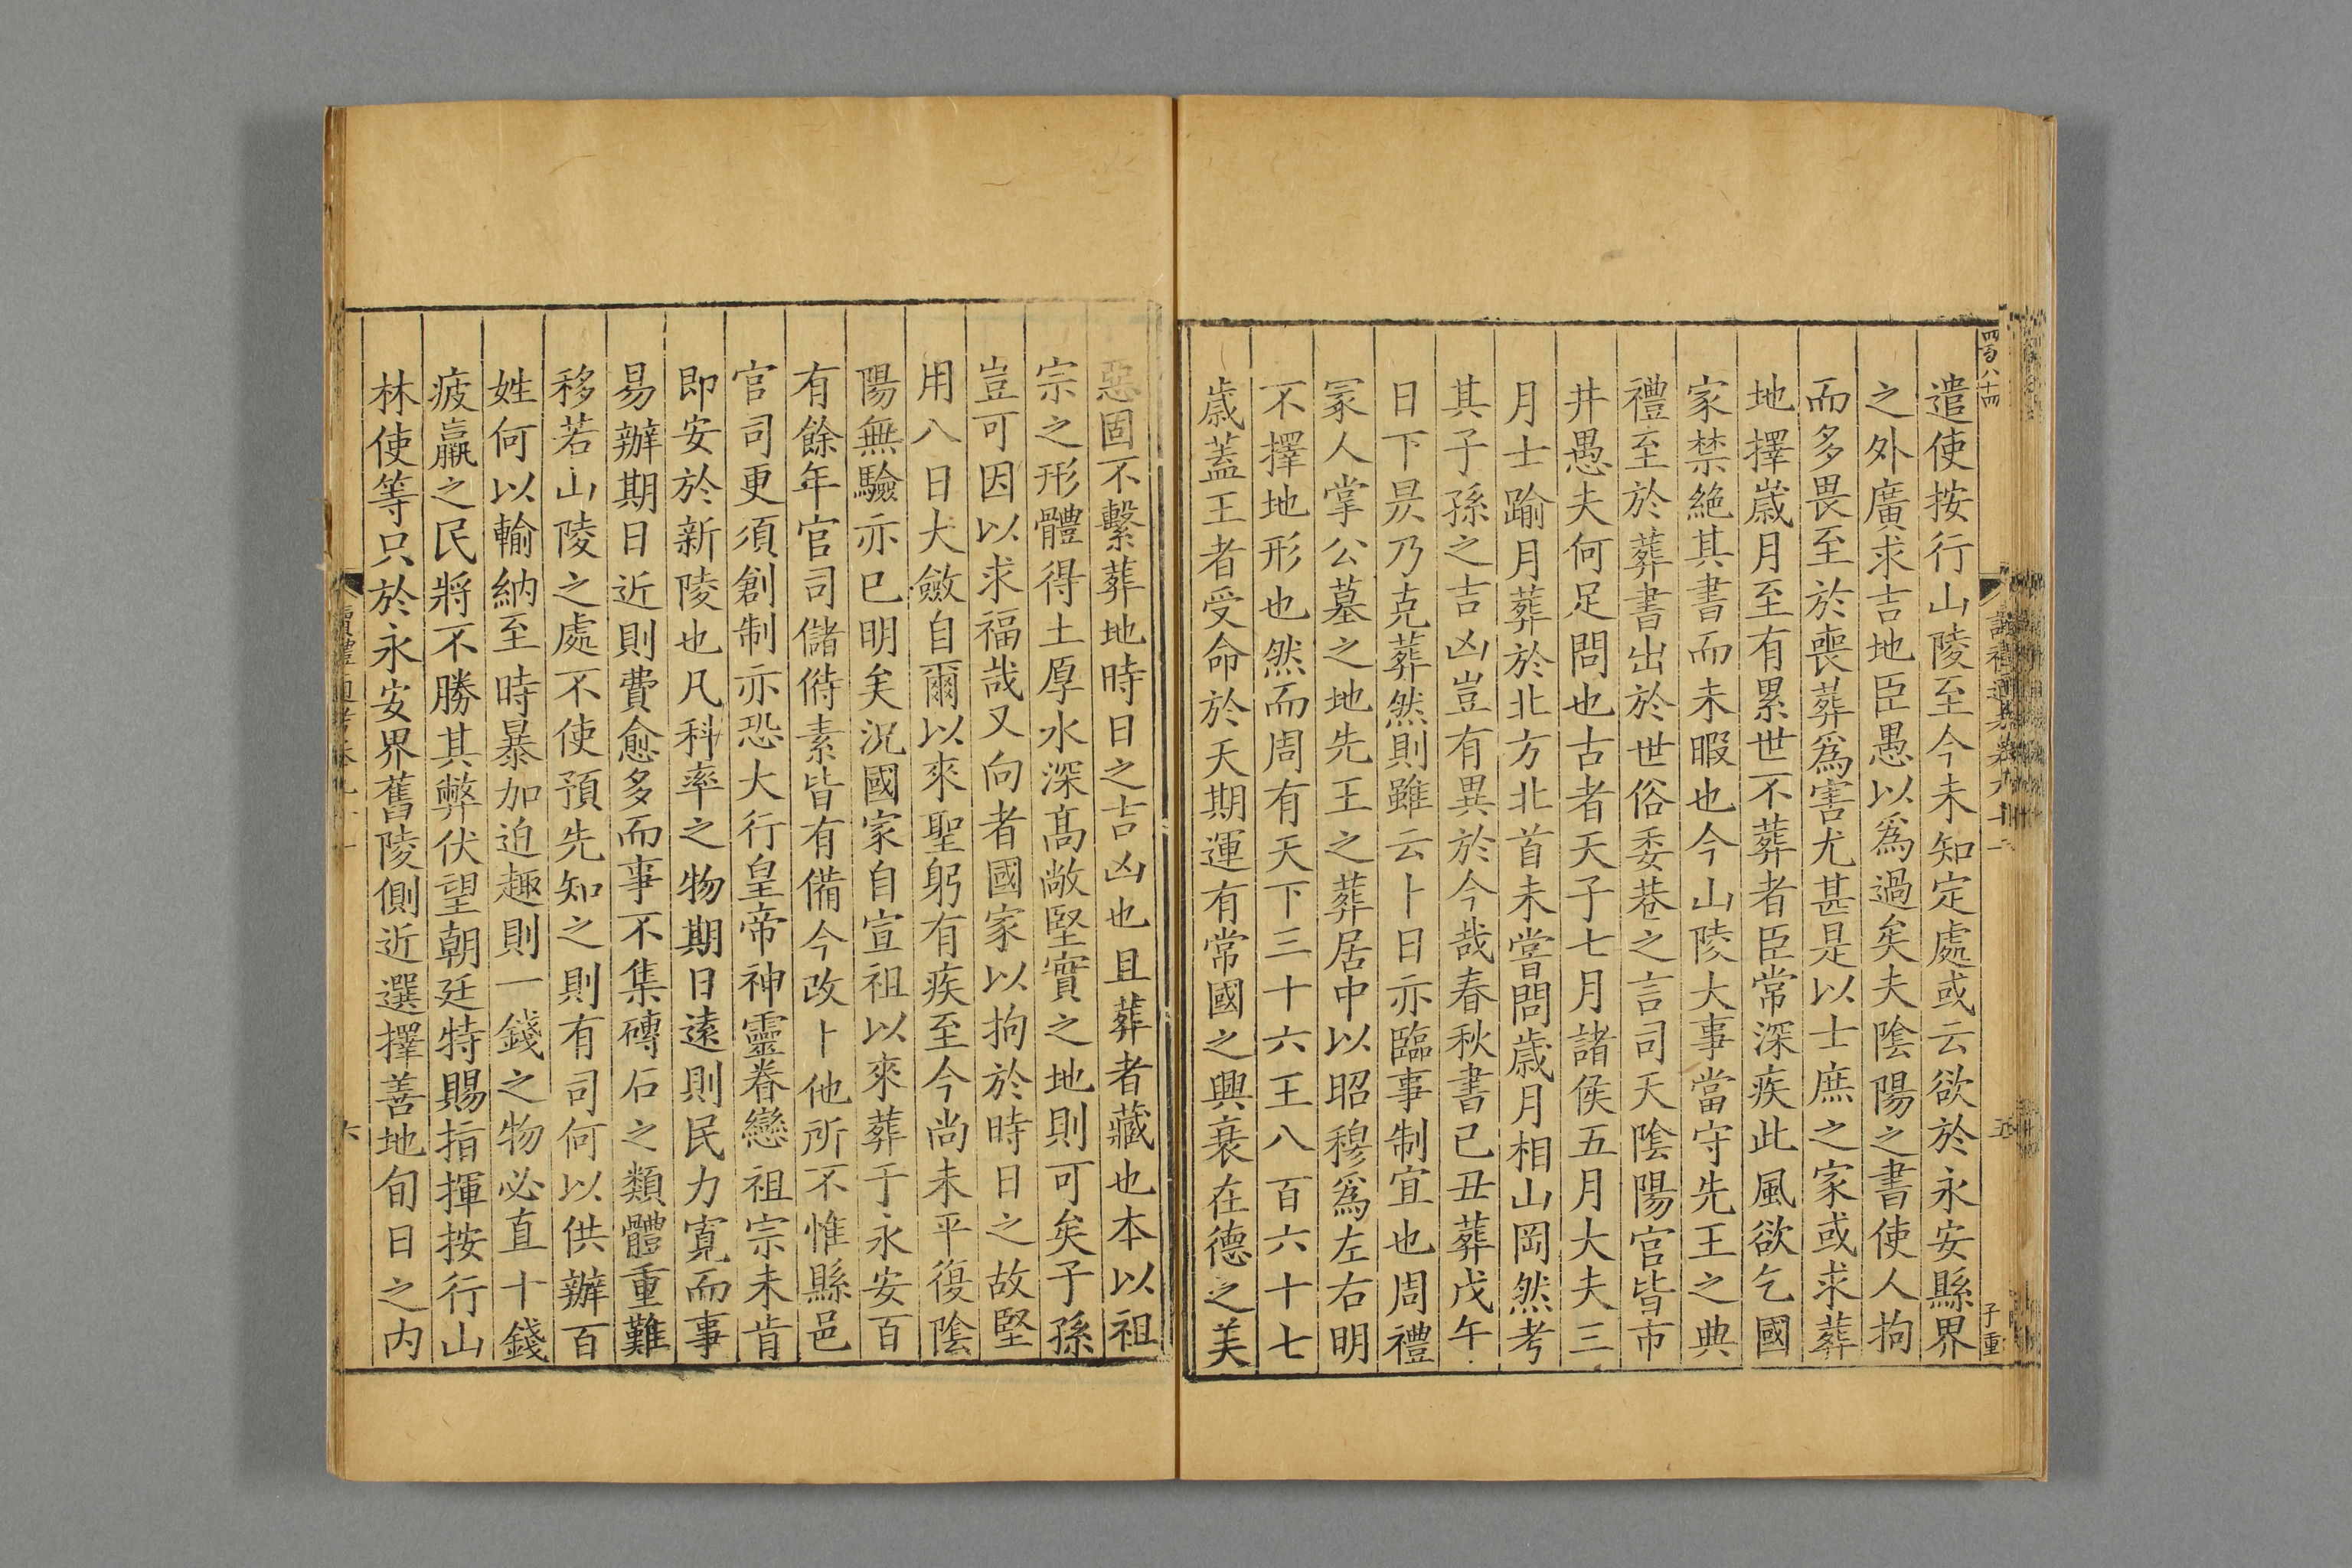 四百八十四
子重
五
遣使按行山陵至今未知定處或云欲於永安縣界
之外廣求吉地臣愚以爲過矣夫陰陽之書使人拘
而多畏至於喪葬爲害尤甚是以士庶之家或求葬
地擇歲月至有累世不葬者臣常深疾此風欲乞國
家禁絶其書而未暇也今山陵大事當守先王之典
禮至於葬書出於世俗委巷之言司天陰陽官皆市
井愚夫何足問也古者天子七月諸侯五月大夫三
月士踰月葬於北方北首未嘗問歲月相山岡然考
其子孫之吉凶豈有異於今哉春秋書己丑葬戊午
日下昃乃克葬然則雖云卜日亦臨事制宜也周禮
冢人掌公墓之地先王之葬居中以昭穆爲左右明
不擇地形也然而周有天下三十六王八百六十七
歲蓋王者受命於天期運有常國之興衰在德之美
惡固不繫葬地時日之吉凶也且葬者藏也本以祖
宗之形體得土厚水深高敞堅實之地則可矣子孫
豈可因以求福哉又向者國家以拘於時日之故堅
用八日大斂自爾以來聖躬有疾至今尚未平復陰
陽無驗亦已明矣況國家自宣祖以來葬于永安百
有餘年官司儲偫素皆有備今改卜他所不惟縣邑
官司更須創制亦恐大行皇帝神靈眷戀祖宗未肯
即安於新陵也凡科率之物期日遠則民力寬而事
易辦期日近則費愈多而事不集磚石之類體重難
移若山陵之處不使預先知之則有司何以供辦百
姓何以輸納至時暴加迫趣則一錢之物必直十錢
疲羸之民將不勝其弊伏望朝廷特賜指揮按行山
林使等只於永安界舊陵側近選擇善地旬日之内
六